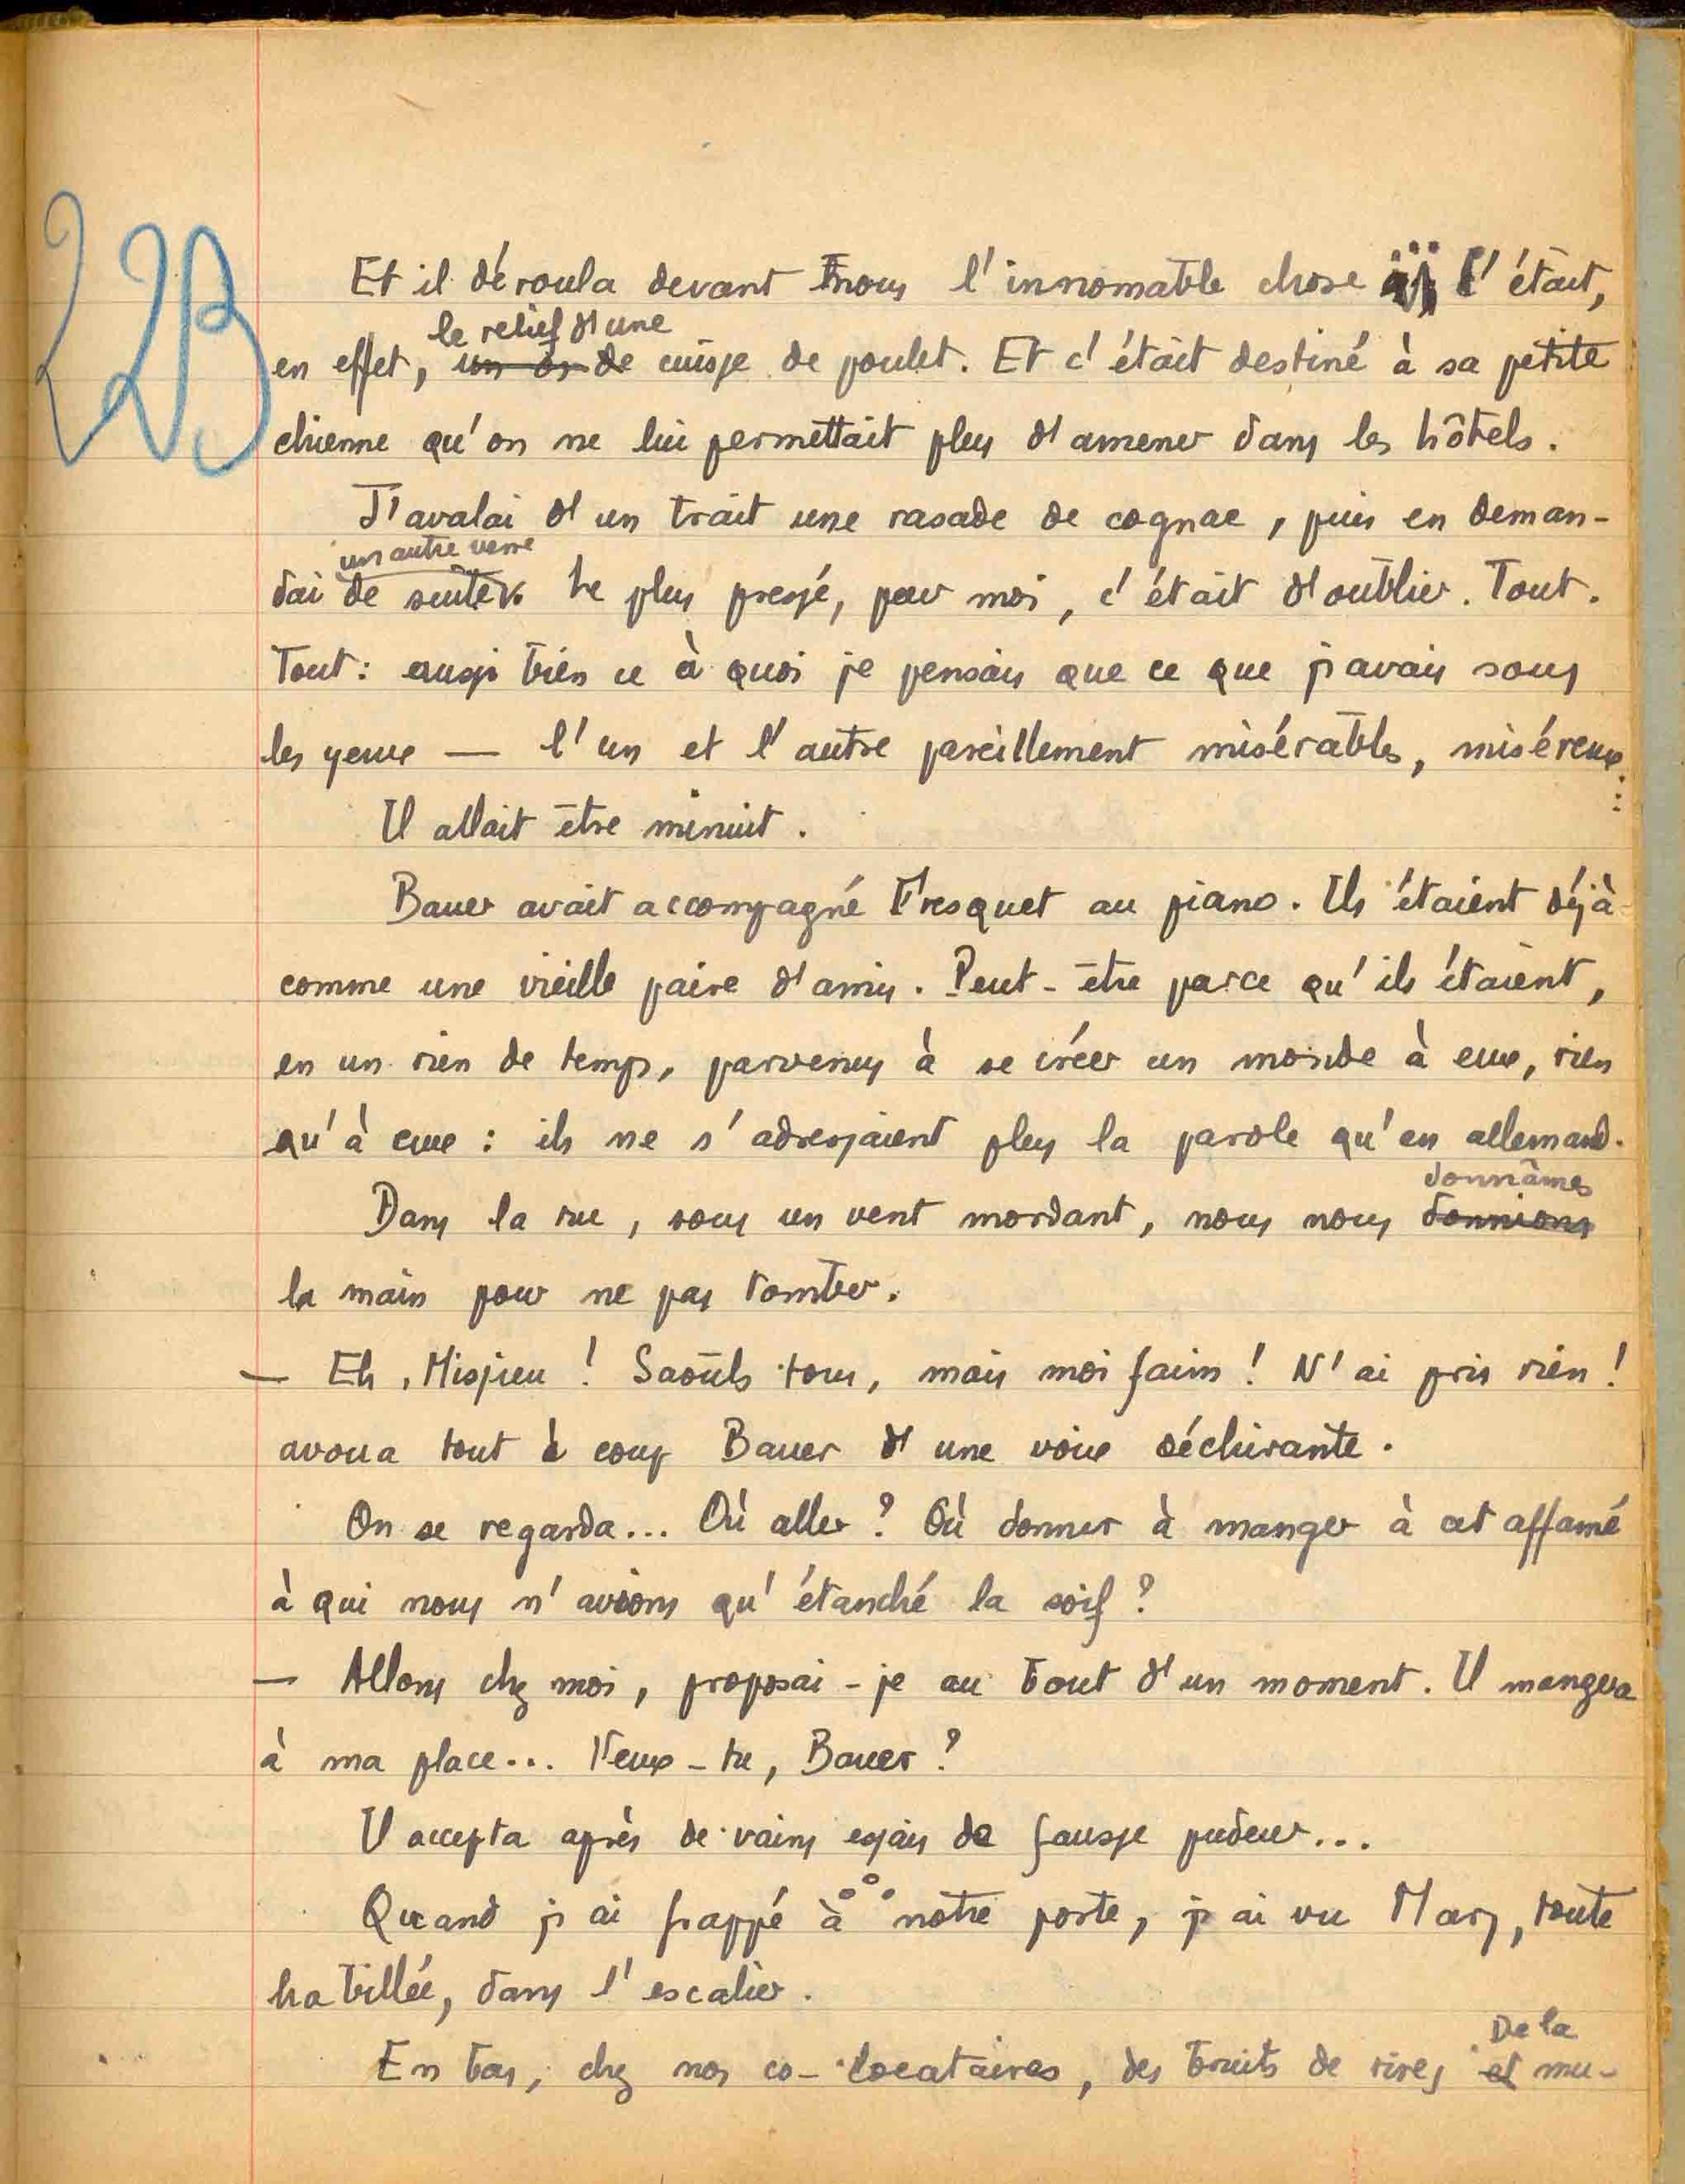 22B
Et il déroula devant nous l'innomable chose... C'était,
le relief d'une
en effet, un os de cuisse de poulet. Et c'était destiné à sa petite
chienne qu'on ne lui permettait plus d'amener dans les hôtels.
J'avalai d'un trait une rasade de cognac, puis en deman-
un autre verre
dai de suite. Le plus pressé, pour moi, c'était d'oublier. Tout.
Tout : aussi bien ce à quoi je pensais que ce que j'avais sous
les yeux — l'un et l'autre pareillement misérables, miséreux...
Il allait être minuit.
Bauer avait accompagné Fresquet au piano. Ils étaient déjà
comme une vieille paire d'amis. Peut-être parce qu'ils étaient,
en un rien de temps, parvenus à se créer un monde à eux, rien
qu'à eux : ils ne s'adressaient plus la parole qu'en allemand.
donnâmes
Dans la rue, sous un vent mordant, nous nous donnions
la main pour ne pas tomber.
— Eh, Missieu ! Saoûls tous, mais moi faim ! N'ai pris rien !
avoua tout à coup Bauer d'une voix déchirante.
On se regarda... Où aller ? Où donner à manger à cet affamé
à qui nous n'avions qu'étanché la soif ?
— Allons chez moi, proposai-je au bout d'un moment. Il mangera
à ma place... Veux-tu, Bauer ?
Il accepta après de vains essais de fausse pudeur...
Quand j'ai frappé à notre porte, j'ai vu Mary, toute
habillée, dans l'escalier.
De la
En bas, chez nos co-locataires, des bruits de rires et mu-